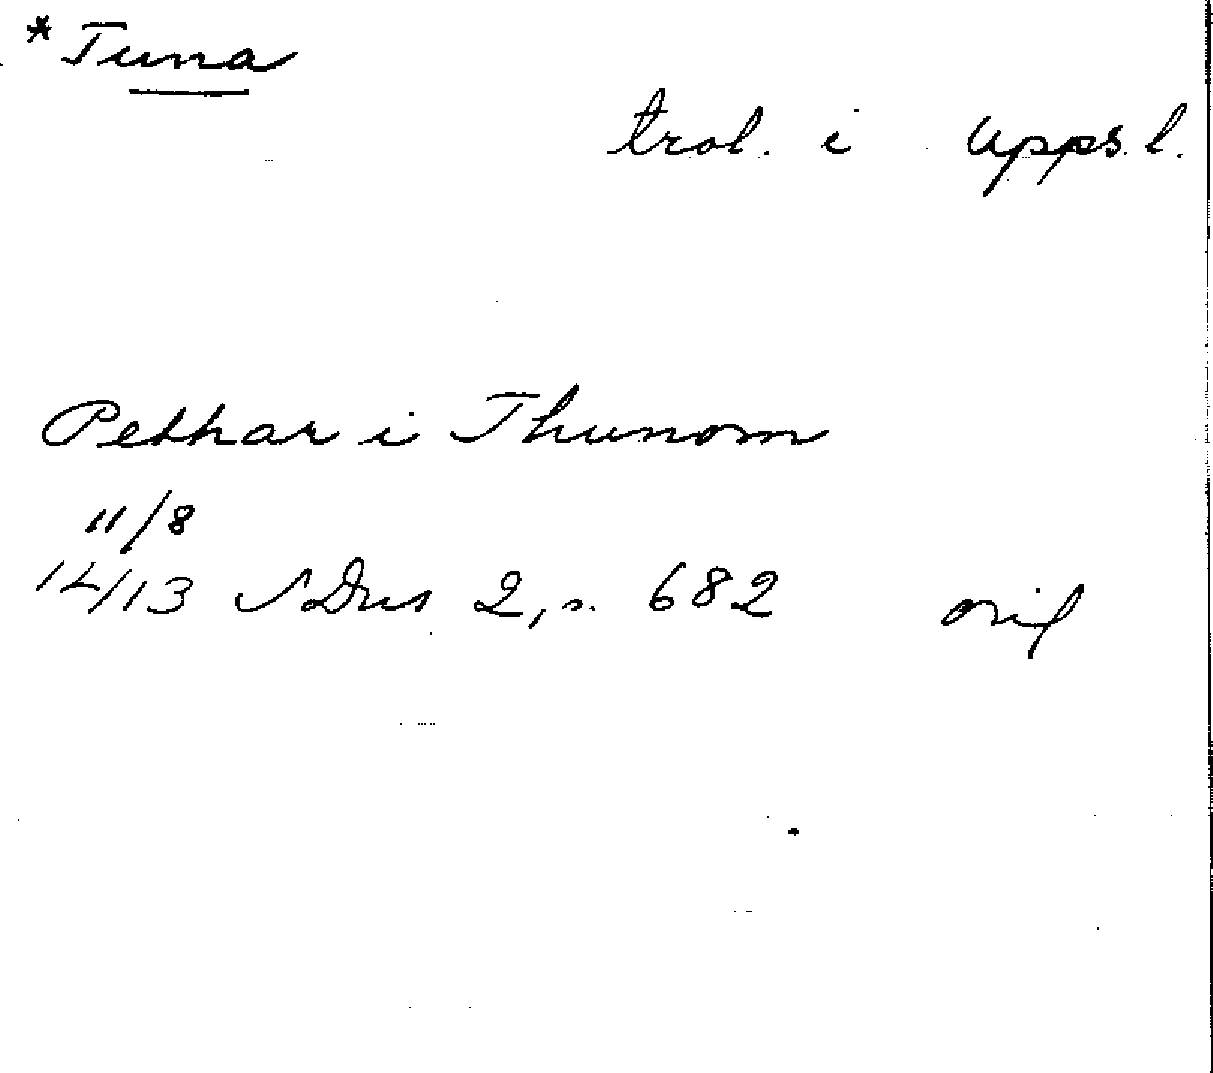 *Tuna
trol. i Upps. l.
Pethar i Thunom
11/8
1413 SDns 2, s. 682 orig